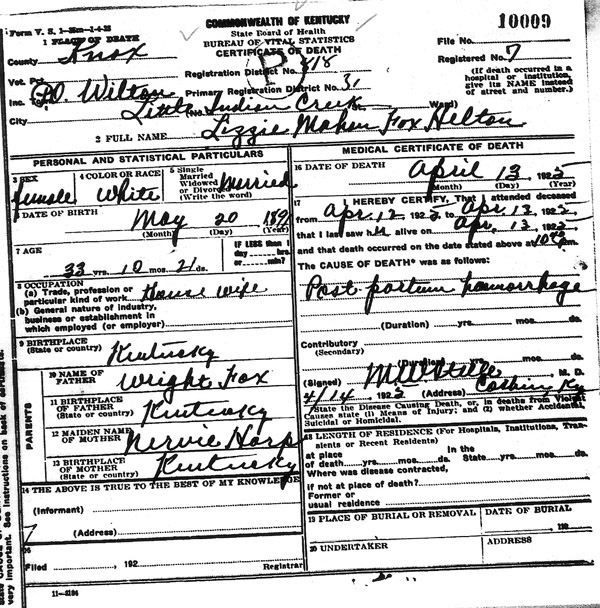 Form V. S. 1-35m-1-4-23
COMMONWEALTH OF KENTUCKY
State Board of Health
BUREAU OF VITAL STATISTICS
CERTIFICATE OF DEATH
10009
File No.
1 PLACE OF DEATH
County Knox
Registration District No. 818
Registered No. 7
Vot. Pct.
(If death occurred in a hospital or institution, give its NAME instead of street and number.)
Inc. P.O. Wilton
Primary Registration District No. 31
City Little Indian Creek
(No. Ward)
2 FULL NAME Lizzie Mahon Fox Helton
PERSONAL AND STATISTICAL PARTICULARS
3 SEX female
4 COLOR OR RACE White
5 Single Married Widowed or Divorced (Write the word) Married
DATE OF BIRTH May 20 189
(Month) (Day) (Year)
7 AGE
33 yrs. 10 mos. 21 ds.
IF LESS than 1 day hrs. or min.?
8 OCCUPATION
(a) Trade, profession or particular kind of work House wife
(b) General nature of industry, business or establishment in which employed (or employer)
9 BIRTHPLACE
(State or country) Kentucky
PARENTS
10 NAME OF FATHER Wright Fox
11 BIRTHPLACE OF FATHER (State or country) Kentucky
12 MAIDEN NAME OF MOTHER Nervie Harp
13 BIRTHPLACE OF MOTHER (State or country) Kentucky
14 THE ABOVE IS TRUE TO THE BEST OF MY KNOWLEDGE
(Informant)
(Address)
Filed , 192 Registrar
11-3184
MEDICAL CERTIFICATE OF DEATH
16 DATE OF DEATH April 13, 192
(Month) (Day) (Year)
17 I HEREBY CERTIFY, That I attended deceased
from Apr. 12 192 to Apr. 13, 192
that I last saw h alive on Apr. 13, 192
and that death occurred on the date stated above at 10 m.
THE CAUSE OF DEATH* was as follows:
Post partum hemorrhage
(Duration) yrs. mos. ds.
Contributory
(Secondary)
(Duration) yrs. mos. ds.
(Signed) M. D.
4/14 192 (Address) Corbin Ky
*State the Disease Causing Death, or, in deaths from Violent Causes state (1) Means of Injury; and (2) whether Accidental, Suicidal or Homicidal.
18 LENGTH OF RESIDENCE (For Hospitals, Institutions, Transients or Recent Residents)
at place of death yrs. mos. ds. In the State yrs. mos. ds.
Where was disease contracted,
If not at place of death?
Former or usual residence
19 PLACE OF BURIAL OR REMOVAL
DATE OF BURIAL
, 192
20 UNDERTAKER
ADDRESS
very important. See instructions on back of certificate.